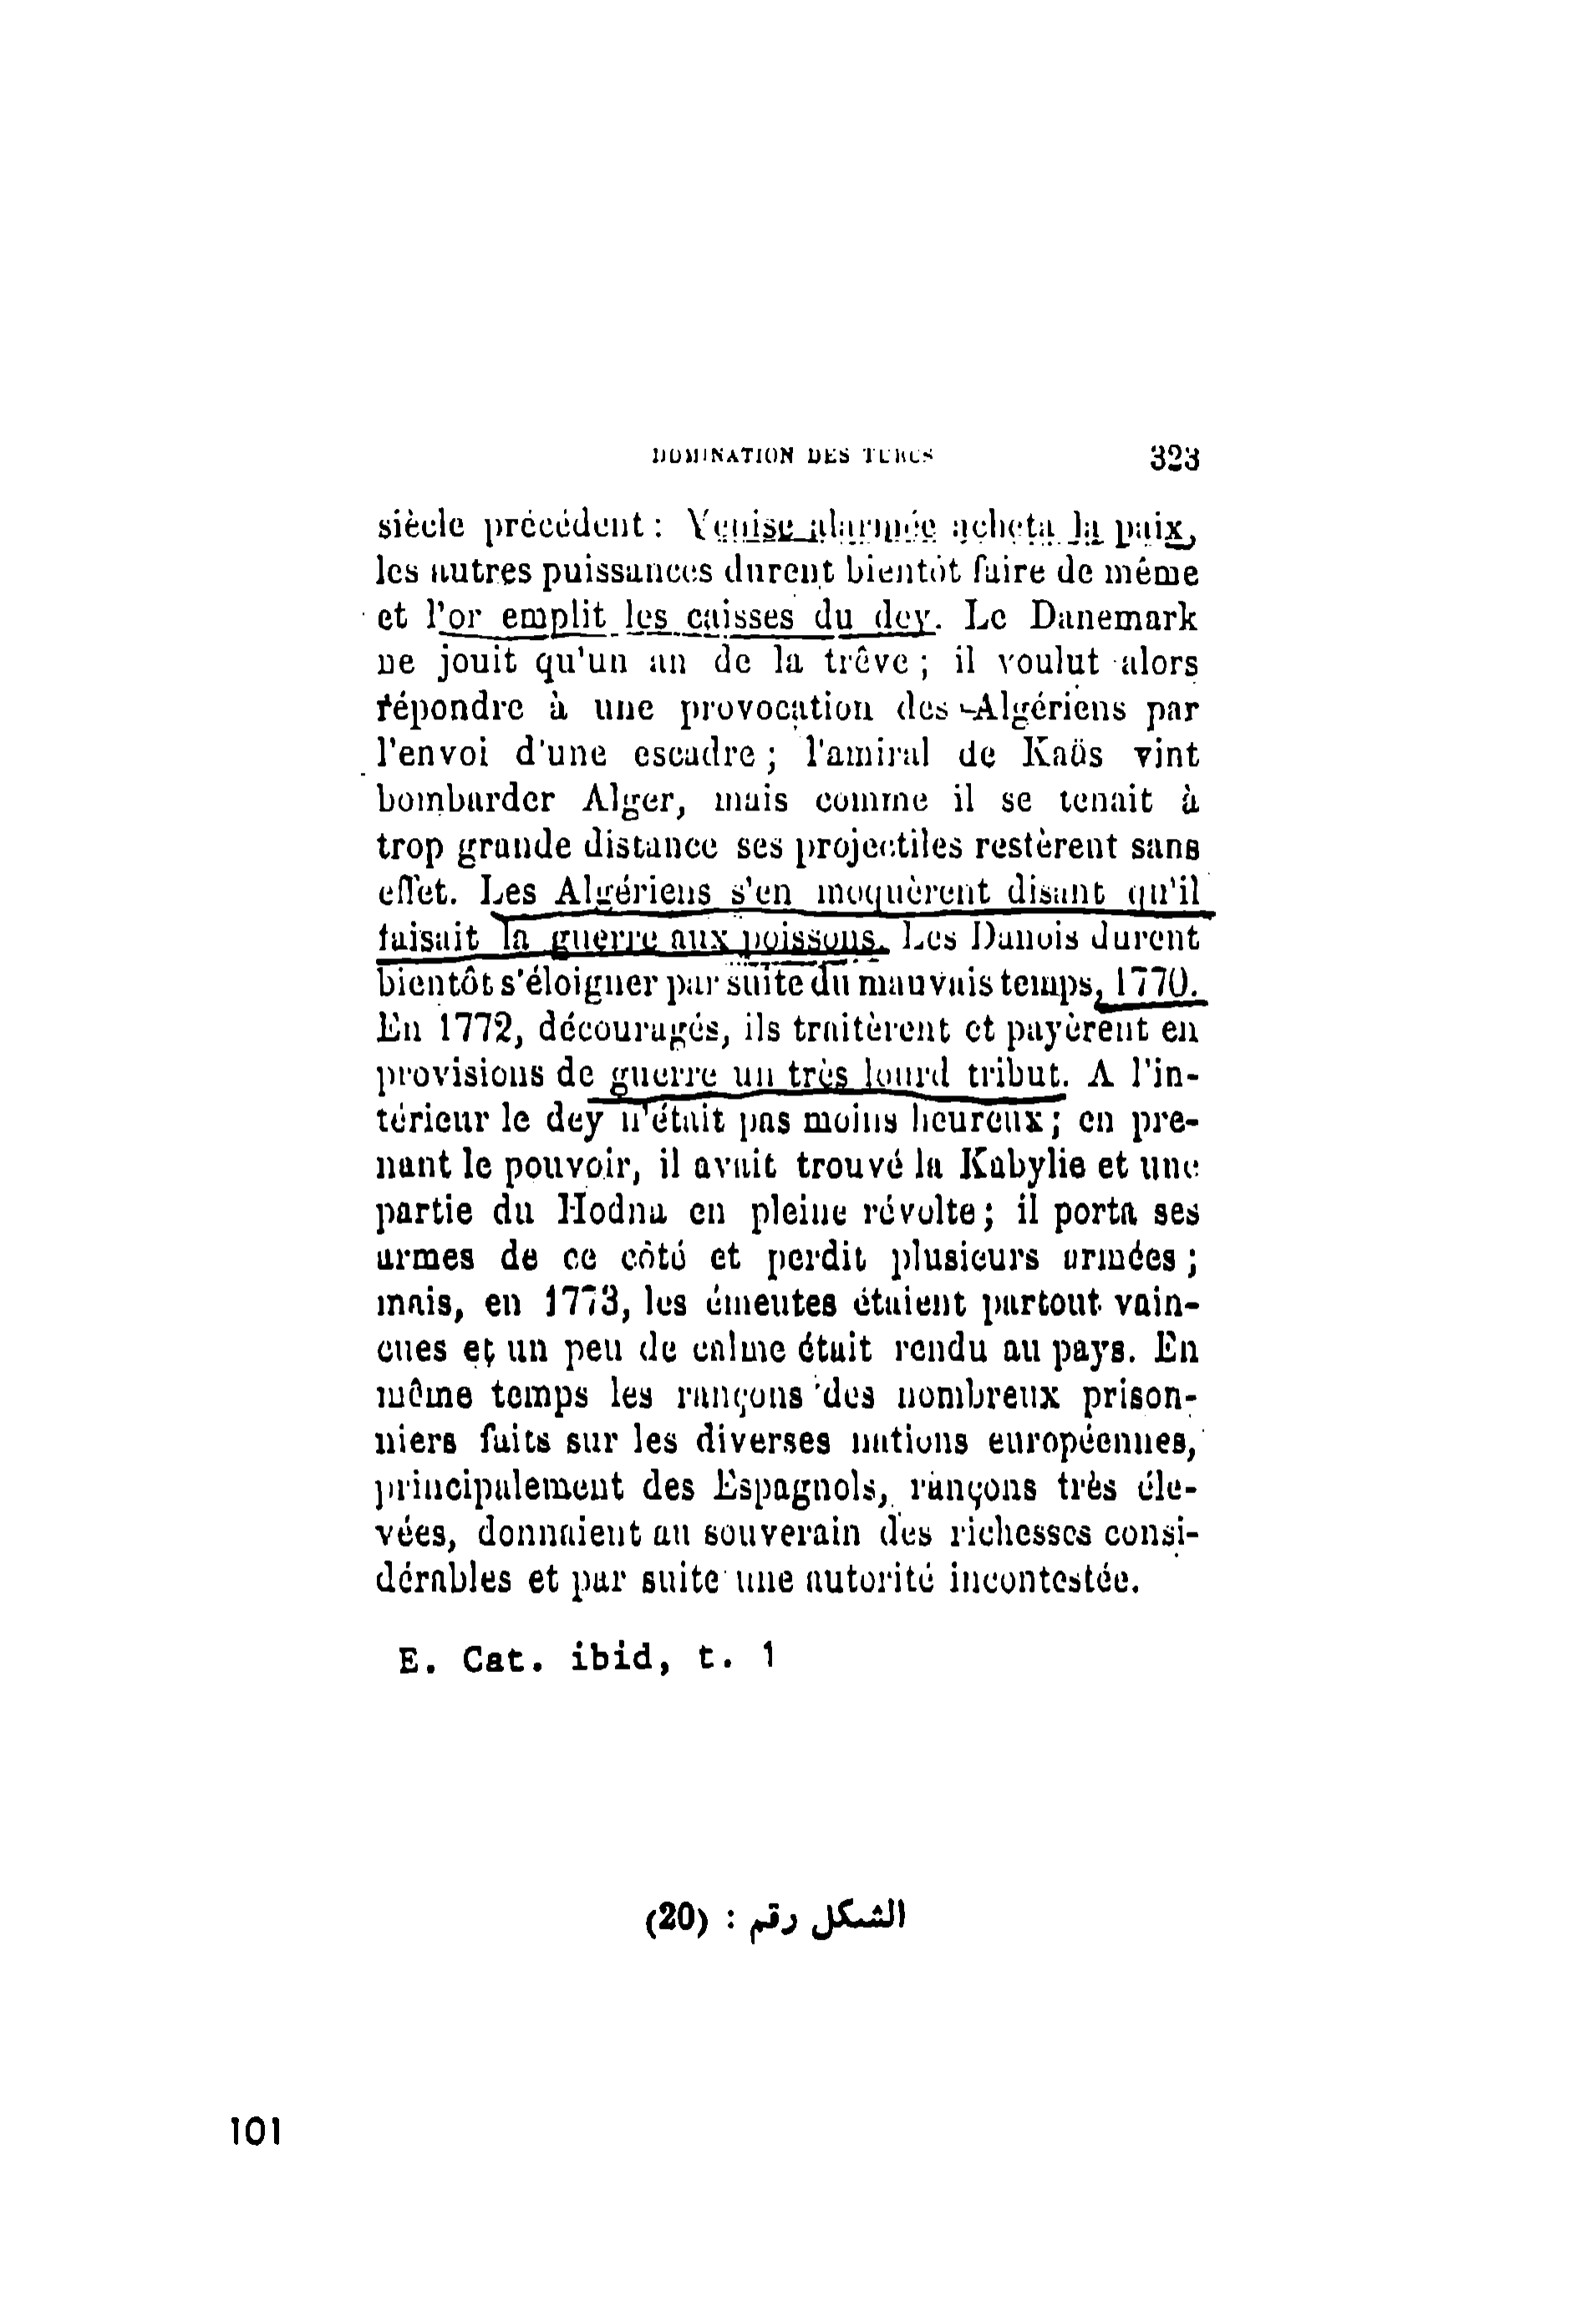 DOMINATION DES TURCS 323
siècle précédent : Venise alarmée acheta la paix,
les autres puissances durent bientôt faire de même
et l'or emplit les caisses du dey. Le Danemark
ne jouit qu'un an de la trêve ; il voulut alors
répondre à une provocation des Algériens par
l'envoi d'une escadre ; l'amiral de Kaüs vint
bombarder Alger, mais comme il se tenait à
trop grande distance ses projectiles restèrent sans
effet. Les Algériens s'en moquèrent disant qu'il
faisait la guerre aux poissons. Les Danois durent
bientôt s'éloigner par suite du mauvais temps, 1770.
En 1772, découragés, ils traitèrent et payèrent en
provisions de guerre un très lourd tribut. A l'in-
térieur le dey n'était pas moins heureux ; en pre-
nant le pouvoir, il avait trouvé la Kabylie et une
partie du Hodna en pleine révolte ; il porta ses
armes de ce côté et perdit plusieurs armées ;
mais, en 1773, les émeutes étaient partout vain-
cues et un peu de calme était rendu au pays. En
même temps les rançons des nombreux prison-
niers faits sur les diverses nations européennes,
principalement des Espagnols, rançons très éle-
vées, donnaient au souverain des richesses consi-
dérables et par suite une autorité incontestée.
E. Cat. ibid, t. 1
الشكل رقم : (20)
101